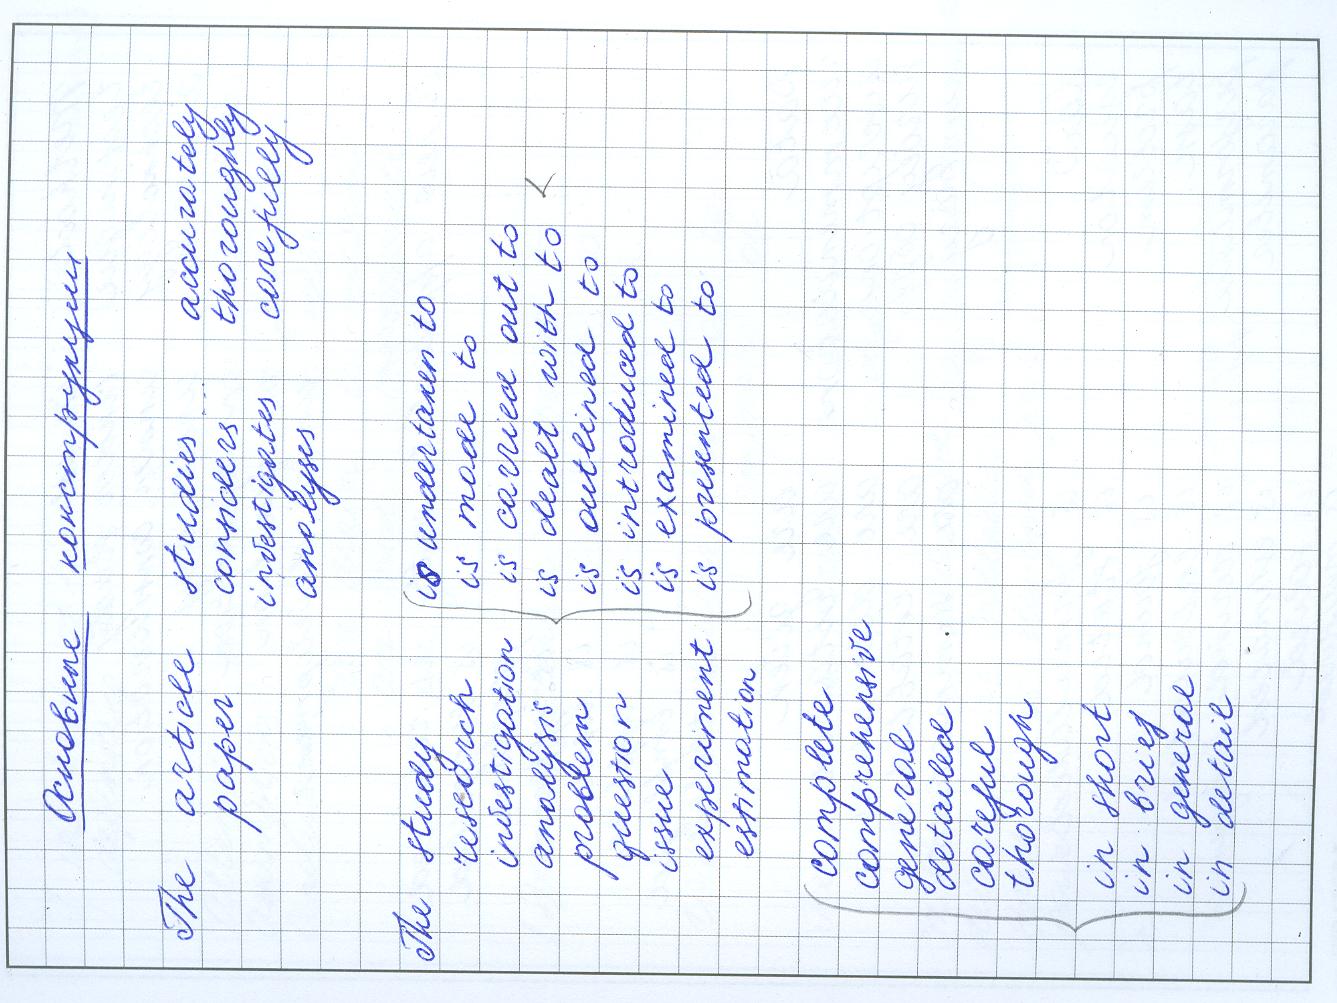 Основные конструкции
The article studies accurately
paper considers thoroughly
investigates carefully
analyses
The study is undertaken to
research is made to
investigation is carried out to
analysis is dealt with to
problem is outlined to
question is introduced to
issue is examined to
experiment is presented to
estimation
complete
comprehensive
general
detailed
careful
thorough
in short
in brief
in general
in detail